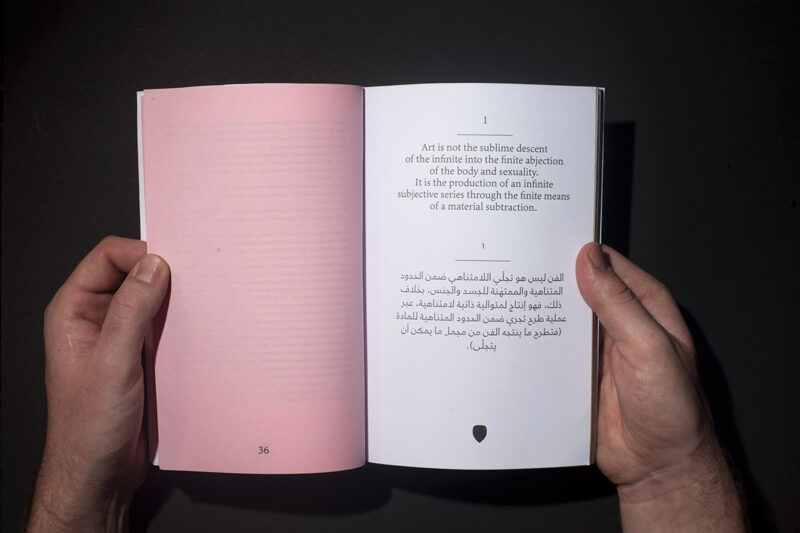 36
1
Art is not the sublime descent
of the infinite into the finite abjection
of the body and sexuality.
It is the production of an infinite
subjective series through the finite means
of a material subtraction.
١
الفن ليس هو تجلّي اللامتناهي ضمن الحدود
المتناهية والممتهَنة للجسد والجنس. بخلاف
ذلك، فهو إنتاج لمتوالية ذاتية لامتناهية، عبر
عملية طرح تجري ضمن الحدود المتناهية للمادة
(فتطرح ما ينتجه الفن من مجمل ما يمكن أن
يتجلّى).